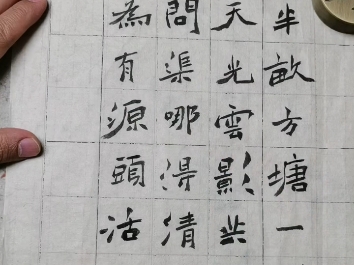 半畝方塘一
天光雲影共
問渠哪得清
為有源頭活